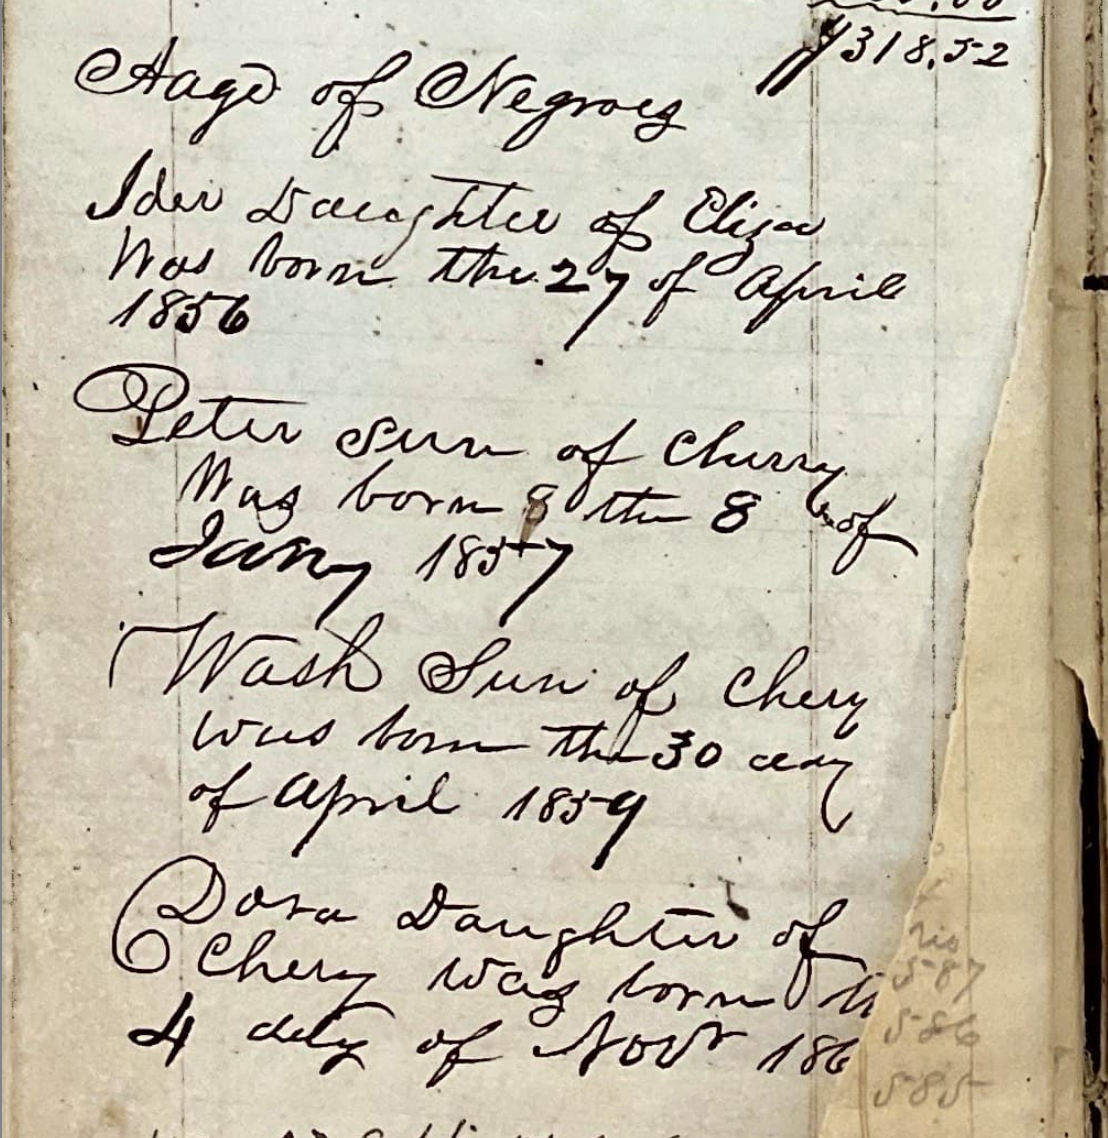 $318.52
Aage of Negroes
Ider Daughter of Eliza
Was born the 27 of April
1856
Peter Sun of Cherry
Was born 8 the 8 of
Jany 1857
Wash Sun of Chery
was born the 30 day
of April 1859
Dora Daughter of
Chery was born th
4 day of Novr 186
587
586
585